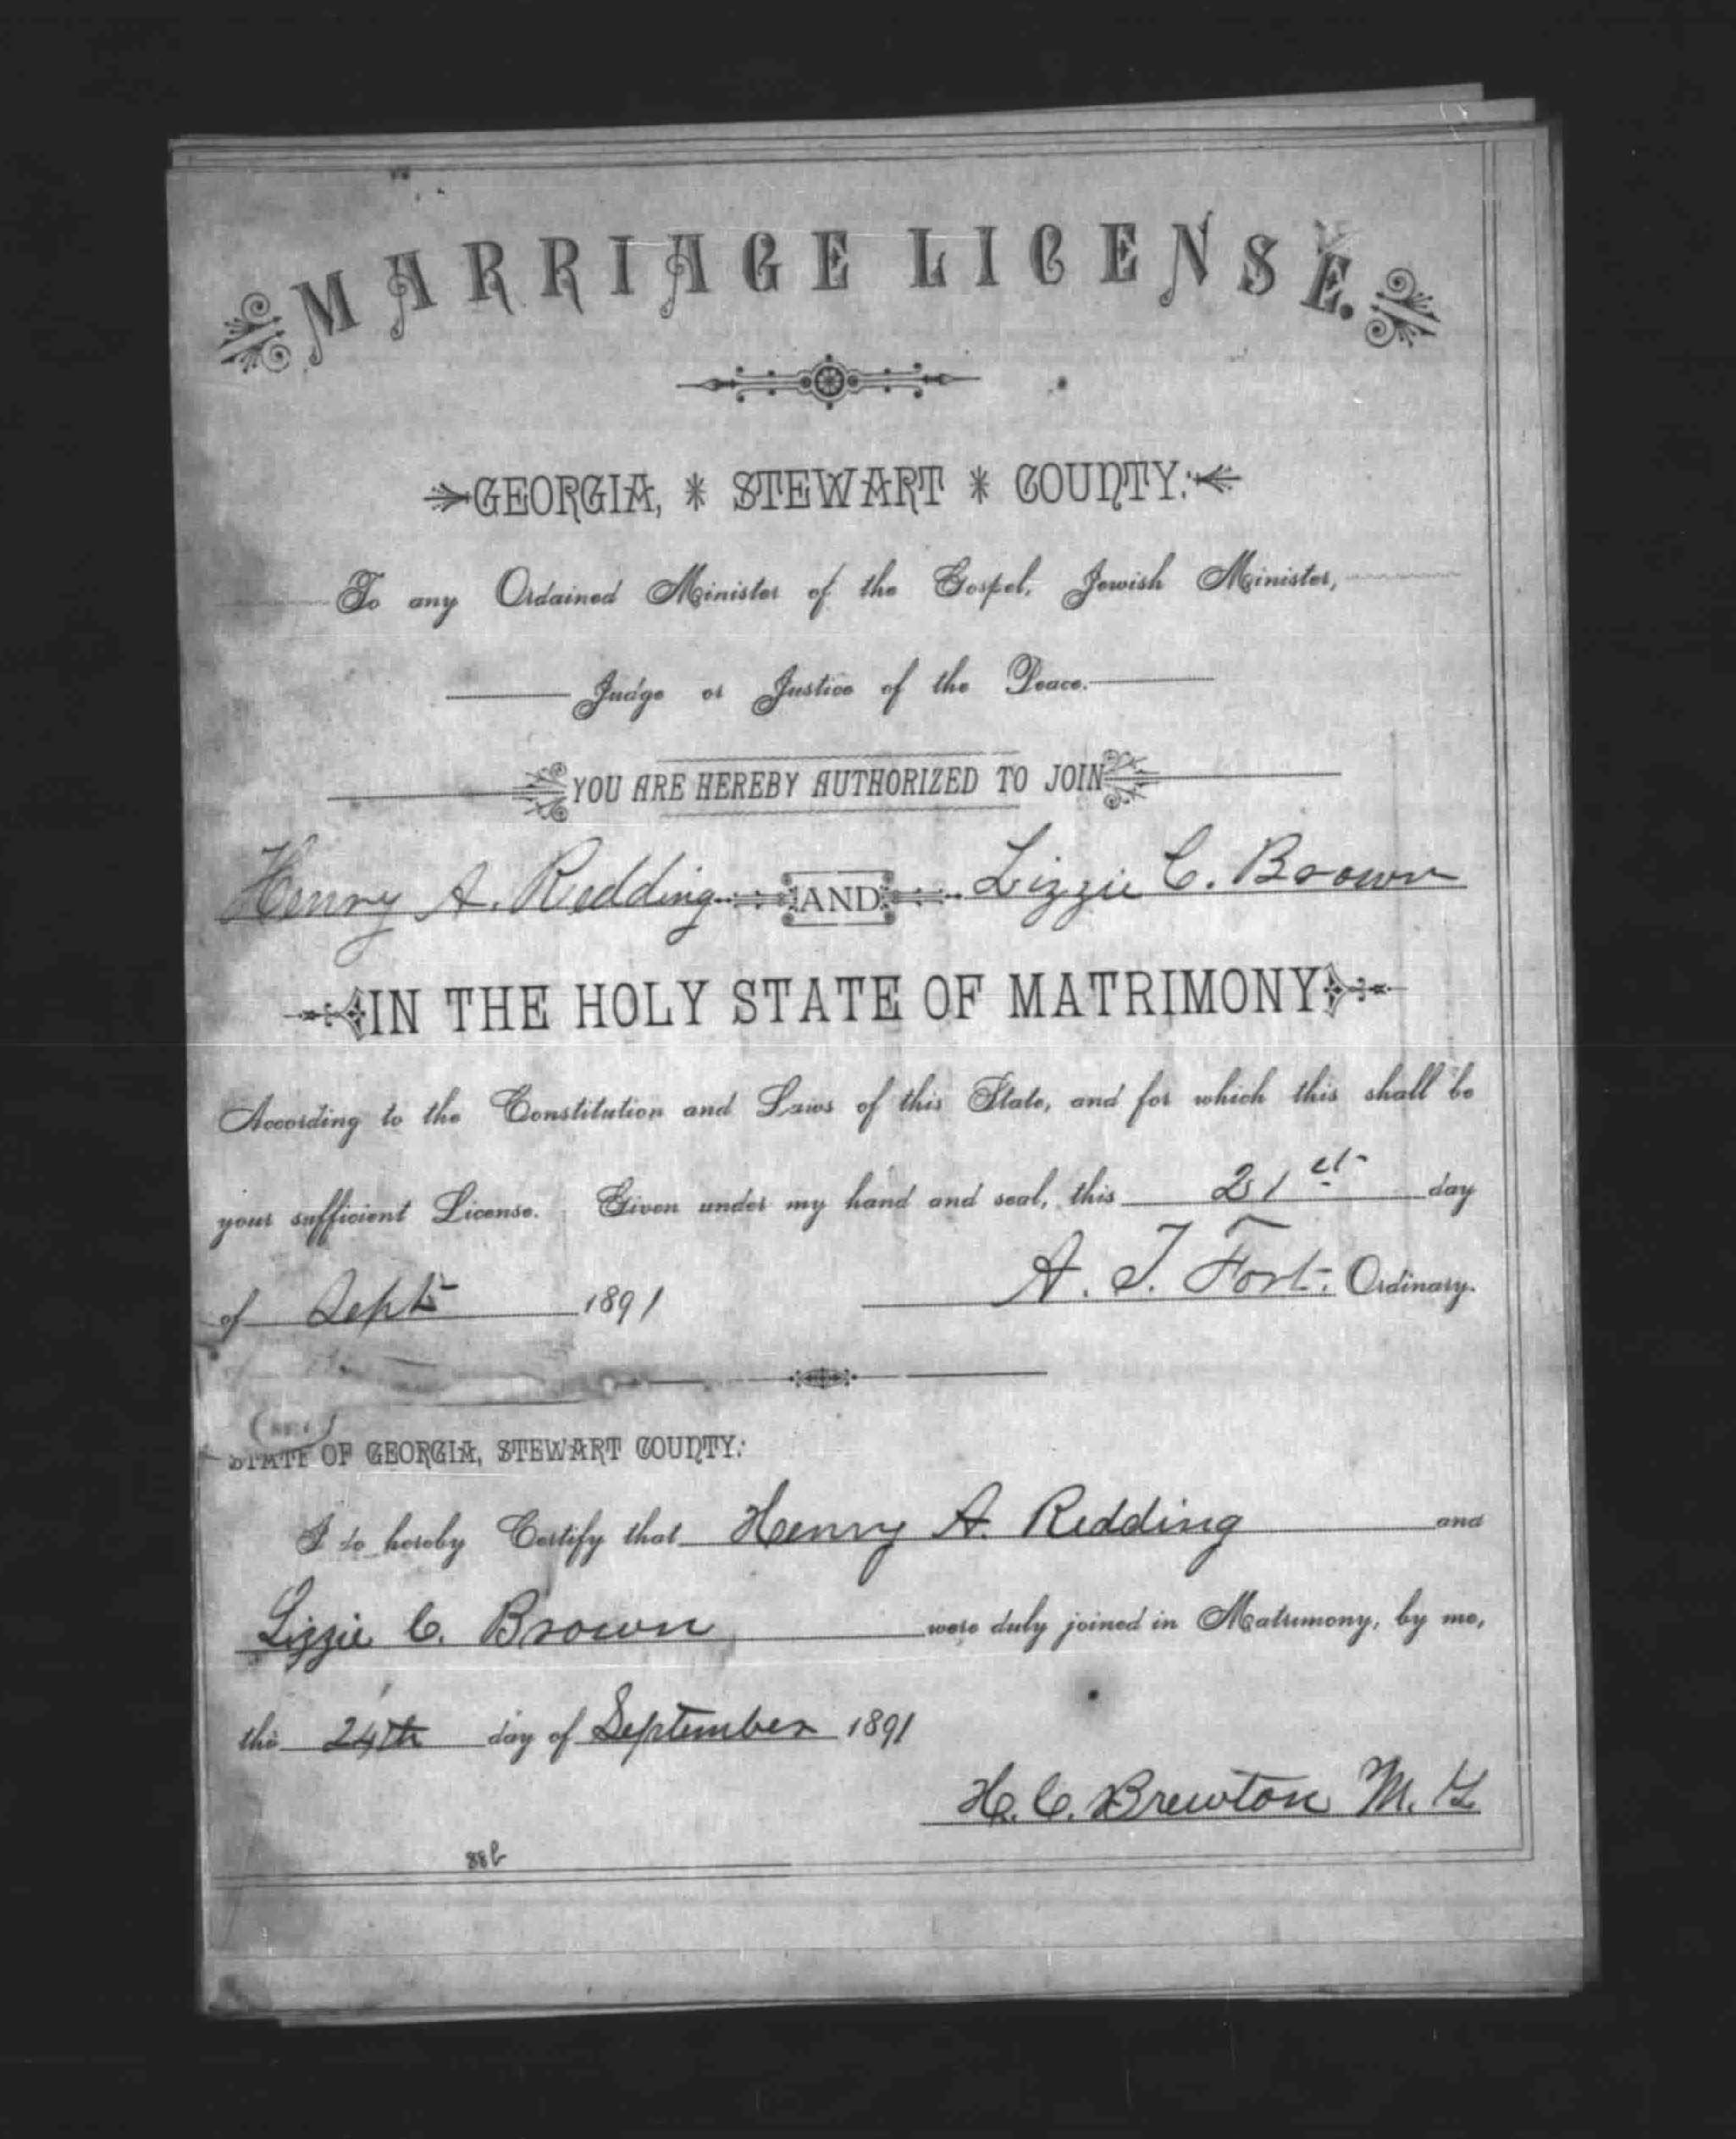 MARRIAGE LICENSE.
GEORGIA, * STEWART * COUNTY:
To any Ordained Minister of the Gospel, Jewish Minister,
Judge or Justice of the Peace.
YOU ARE HEREBY AUTHORIZED TO JOIN
Henry A. Redding AND Lizzie C. Brown
IN THE HOLY STATE OF MATRIMONY
According to the Constitution and Laws of this State, and for which this shall be
your sufficient License. Given under my hand and seal, this 21st day
of Sept 1891 A. T. Fort. Ordinary.
STATE OF GEORGIA, STEWART COUNTY:
I do hereby Certify that Henry A. Redding and
Lizzie C. Brown were duly joined in Matrimony, by me,
the 24th day of September 1891
H. C. Brewton M. G.